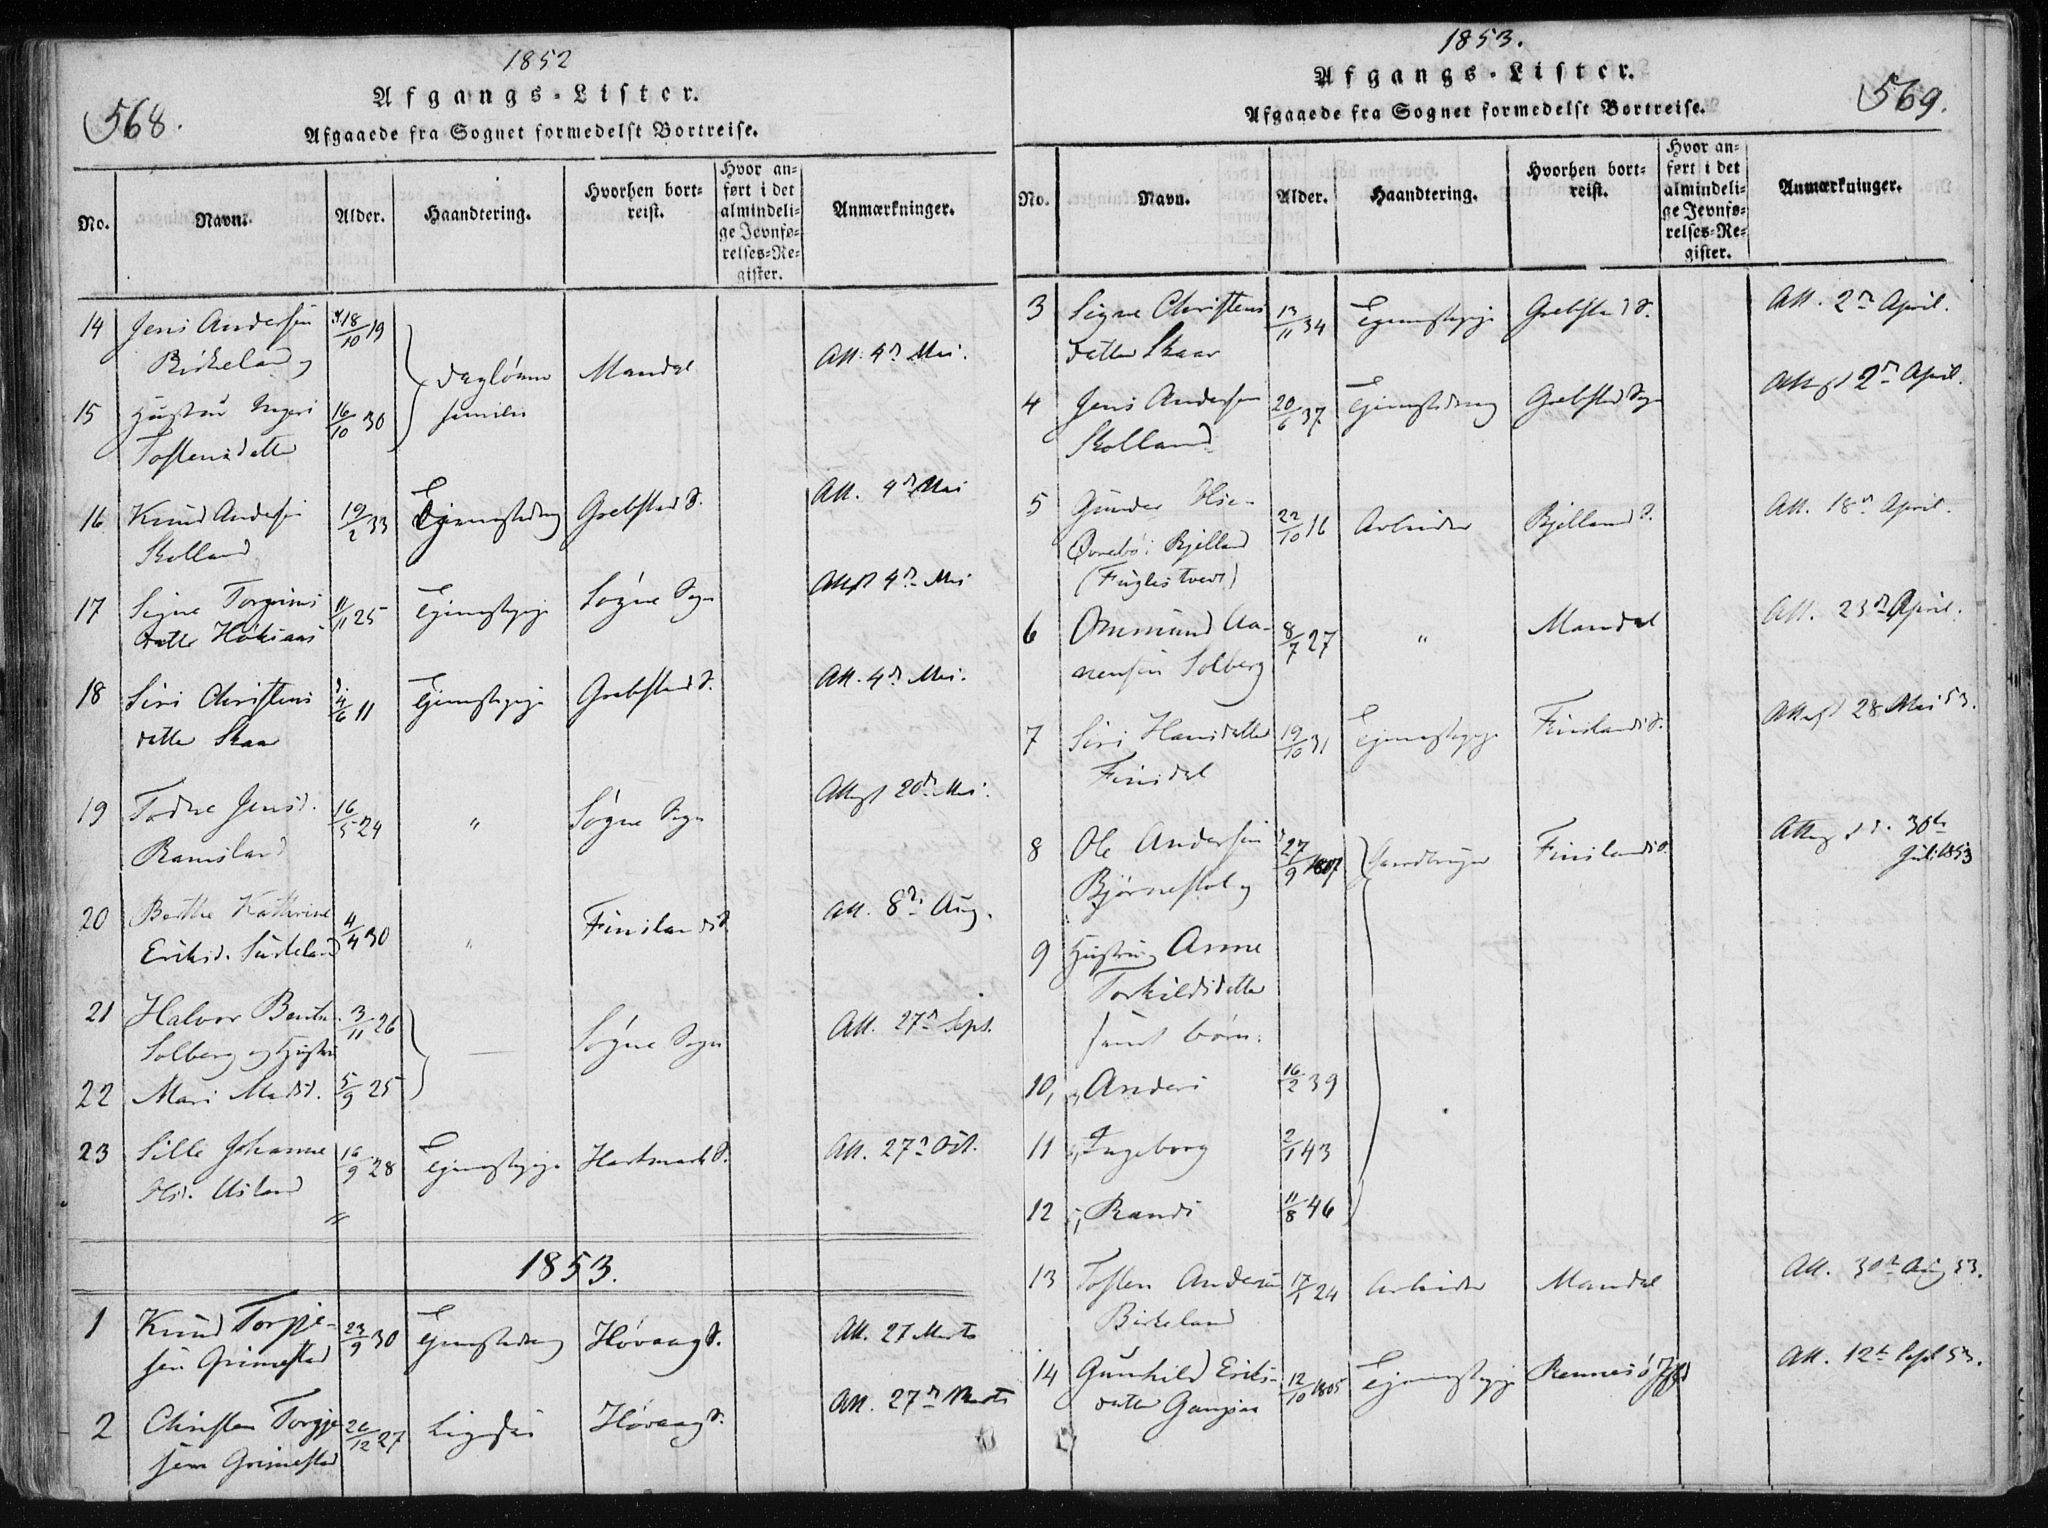 1852
568.
Afgangs-Lister.
Afgaaede fra Sognet formedelst Bortreise.
No.
Navn.
Alder.
Haandtering.
Hvorhen bort-
reist.
Hvor an-
ført i det
almindeli-
ge Jevnfø-
relses-Re-
gister.
Anmærkninger.
14 Jens Andersen 18/10 19
Birkeland
Mandal Att. 4de Mai.
15 Hustru Ingeri 16/10 30
Tostensdatter
familie
16 Knud Andersen 19/2 33 Tjenestedreng Grebstad S. Att. 4de Mai
Skolland
17 Signe Torgrims 11/11 25 Tjenestepige Søgne Sogn Attest 4de Mai
datter
18 Siri Christens 4/6 11 Tjenestepige Grebstad S. Att. 4de Mai.
datter Skaar
19 Todne Jensd. 16/5 24 " Søgne Sogn Attest 20de Mai.
Ramsland
20 Berthe Kathrine 4/4 30 " Finslands S. Att. 8de Aug.
Eriksd.
21 Halvor Bentsen 3/11 26 Søgne Sogn Att. 27de Sept.
Solberg og Hustru
22 Mari Madsd. 5/9 25
23 Sille Johanne 16/9 28 Tjenestepige Hartmark S. Att. 27de Oct.
Olsd. Usland
1853.
1 Knud Torgje- 23/9 30 Tjenestedreng Høvaag S. Att. 27 Marts
sen Grimestad
2 Christen Torgje- 20/12 27 Ligesaa Høvaag S. Att. 27de Marts
sen Grimestad
1853.
569.
Afgangs-Lister.
Afgaaede fra Sognet formedelst Bortreise.
No.
Navn.
Alder.
Haandtering.
Hvorhen bort-
reist.
Hvor an-
ført i det
almindeli-
ge Jevnfø-
relses-Re-
gister.
Anmærkninger.
3 Signe Christens 13/11 34 Tjenestepige Grebstad S. Att. 2de April.
datter Skaar
4 Jens Andersen 20/6 37 Tjenestedreng Grebstad Sogn Attest 2de April.
Skolland
5 Gunder 22/10 16 Arbeider Bjelland S. Att. 18de April.
Øvrebø i Bjelland
(Fuglestvedt)
6 Ommund Aa- 8/7 27 " Mandal Att. 23de April.
nensen Solberg
7 Siri Hansdatter 19/10 31 Tjenestepige Finslands S. Attest 28 Mai 53.
Finsdal
8 Ole Andersen 27/9 1807 Finslands S. Attest d. 30te
Bjørnestøl og Juli 1853
9 Hustru Anne
Torkildsdatter
samt børn:
10, Anders 16/2 39
11 Ingeborg 2/1 43
12 Randi 11/8 46
13 Tosten Andersen 17/1 24 Arbeider Mandal Att. 30te Aug 53.
Birkeland
14 Gunhild Eriks- 12/10 1805 Tjenestepige Rennesø Att. 12te Sept 53.
datter